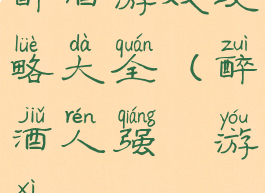 lüè dà quán zuì
略大全（醉
jiǔ rén qiáng yóu
酒人强 游
xì